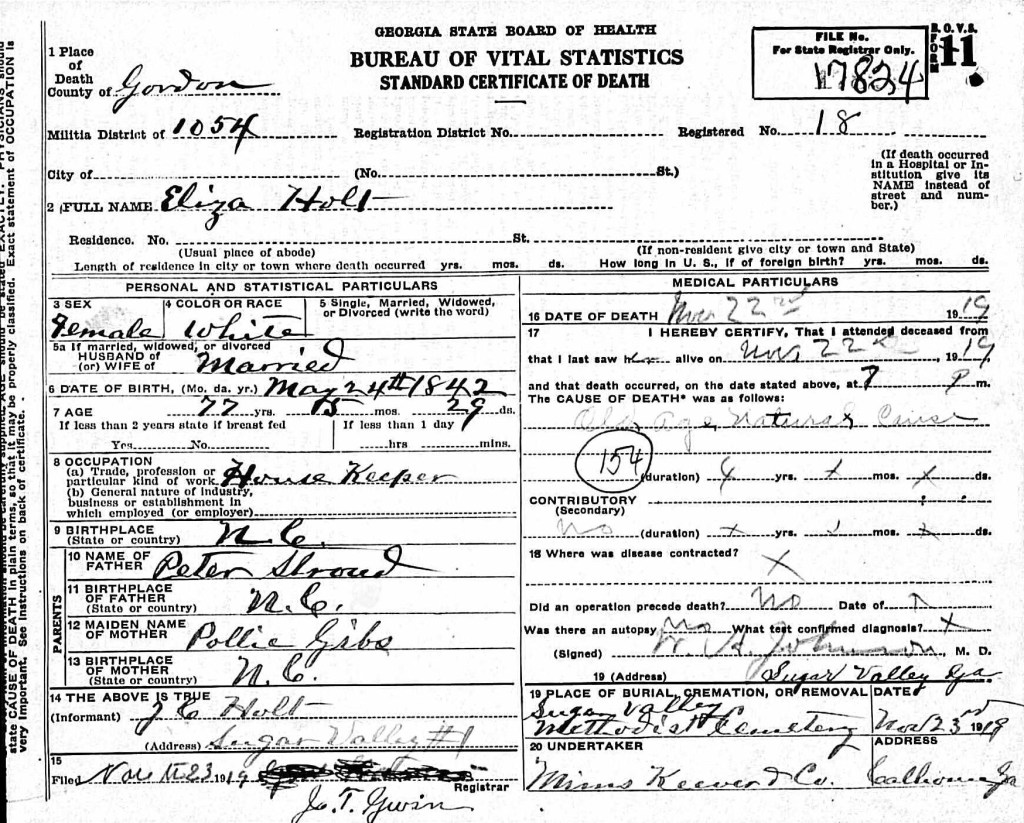 GEORGIA STATE BOARD OF HEALTH
BUREAU OF VITAL STATISTICS
STANDARD CERTIFICATE OF DEATH
FILE No.
For State Registrar Only.
17824
B.O.V.S.
FORM 11
1 Place of Death
County of Gordon
Militia District of 1054 Registration District No. Registered No. 18
City of (No. St.)
(If death occurred in a Hospital or Institution give its NAME instead of street and number.)
2 FULL NAME Eliza Holt
Residence. No. St.
(Usual place of abode) (If non-resident give city or town and State)
Length of residence in city or town where death occurred yrs. mos. ds. How long in U. S., if of foreign birth? yrs. mos. ds.
PERSONAL AND STATISTICAL PARTICULARS
3 SEX 4 COLOR OR RACE 5 Single, Married, Widowed, or Divorced (write the word)
Female White
5a If married, widowed, or divorced
HUSBAND of
(or) WIFE of Married
6 DATE OF BIRTH, (Mo. da. yr.) May 24th 1842
7 AGE 77 yrs. 15 mos. 29 ds.
If less than 2 years state if breast fed If less than 1 day
Yes No. hrs mins.
8 OCCUPATION
(a) Trade, profession or
particular kind of work House Keeper
(b) General nature of industry,
business or establishment in
which employed (or employer)
9 BIRTHPLACE
(State or country) N.C.
PARENTS
10 NAME OF
FATHER Peter Stroud
11 BIRTHPLACE
OF FATHER
(State or country) N.C.
12 MAIDEN NAME
OF MOTHER Pollie Gibs
13 BIRTHPLACE
OF MOTHER
(State or country) N.C.
14 THE ABOVE IS TRUE
(Informant) J C Holt
(Address) Sugar Valley #1
15
Filed Nov 23 1919 Registrar
J. T. Gwin
MEDICAL PARTICULARS
16 DATE OF DEATH Nov 22nd 1919
17 I HEREBY CERTIFY, That I attended deceased from
that I last saw h alive on Nov 22nd, 1919
and that death occurred, on the date stated above, at 7 P m.
The CAUSE OF DEATH* was as follows:
Old Age Natural Cause
154
(duration) yrs. x mos. x ds.
CONTRIBUTORY
(Secondary)
No (duration) x yrs. mos. x ds.
18 Where was disease contracted?
X
Did an operation precede death? No Date of
Was there an autopsy No What test confirmed diagnosis? X
(Signed) W. A. Johnson, M. D.
19 (Address) Sugar Valley Ga
19 PLACE OF BURIAL, CREMATION, OR REMOVAL DATE
Sugar Valley
Methodist Cemetery Nov 23rd 1919
20 UNDERTAKER ADDRESS
Mims Keever & Co. Calhoun Ga
state CAUSE OF DEATH in plain terms, so that it may be properly classified. Exact statement of OCCUPATION is
very Important. See instructions on back of certificate.